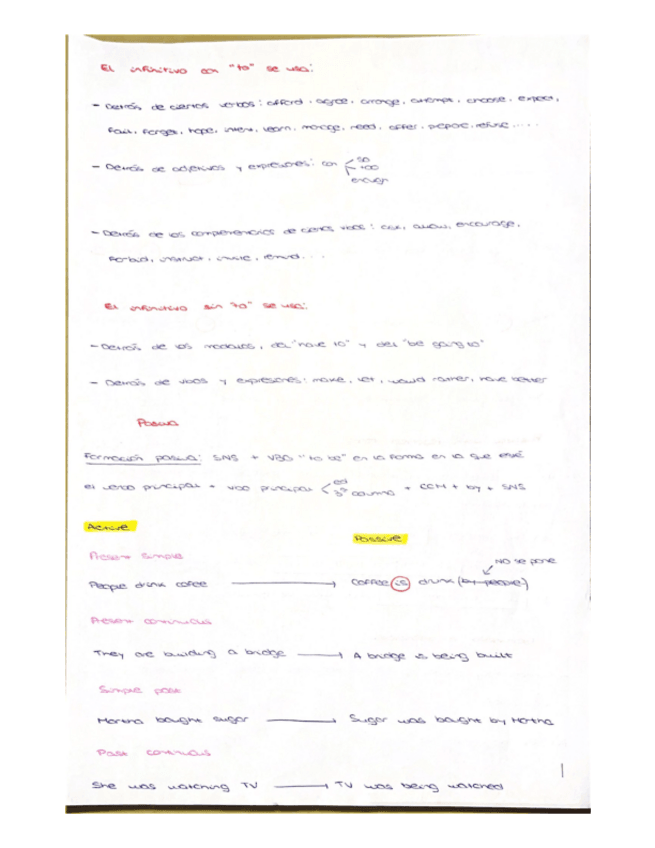 El infinitivo con "to" se usa:
- Detrás de ciertos verbos: afford, agree, arrange, attempt, choose, expect,
fail, forget, hope, intend, learn, manage, need, offer, prepare, refuse, ....
- Detrás de adjetivos y expresiones: con so
too
enough
- Detrás de los complementos de ciertos vbos: ask, allow, encourage,
forbid, instruct, invite, remind...
El infinitivo sin "to" se usa:
- Detrás de los modales, del "have to" y del "be going to"
- Detrás de vbos y expresiones: make, let, would rather, have better
Pasiva
Formación pasiva: SNS + VBO "to be" en la forma en la que esté
el verbo principal + vbo principal ed
3ª columna + CCM + by + SNS
Active
Passive
Present simple
NO se pone
People drink cofee → Coffee is drunk (by people)
Present continuous
They are building a bridge → A bridge is being built
Simple past
Martha bought sugar → Sugar was bought by Martha
Past continuous
She was watching TV → TV was being watched
1